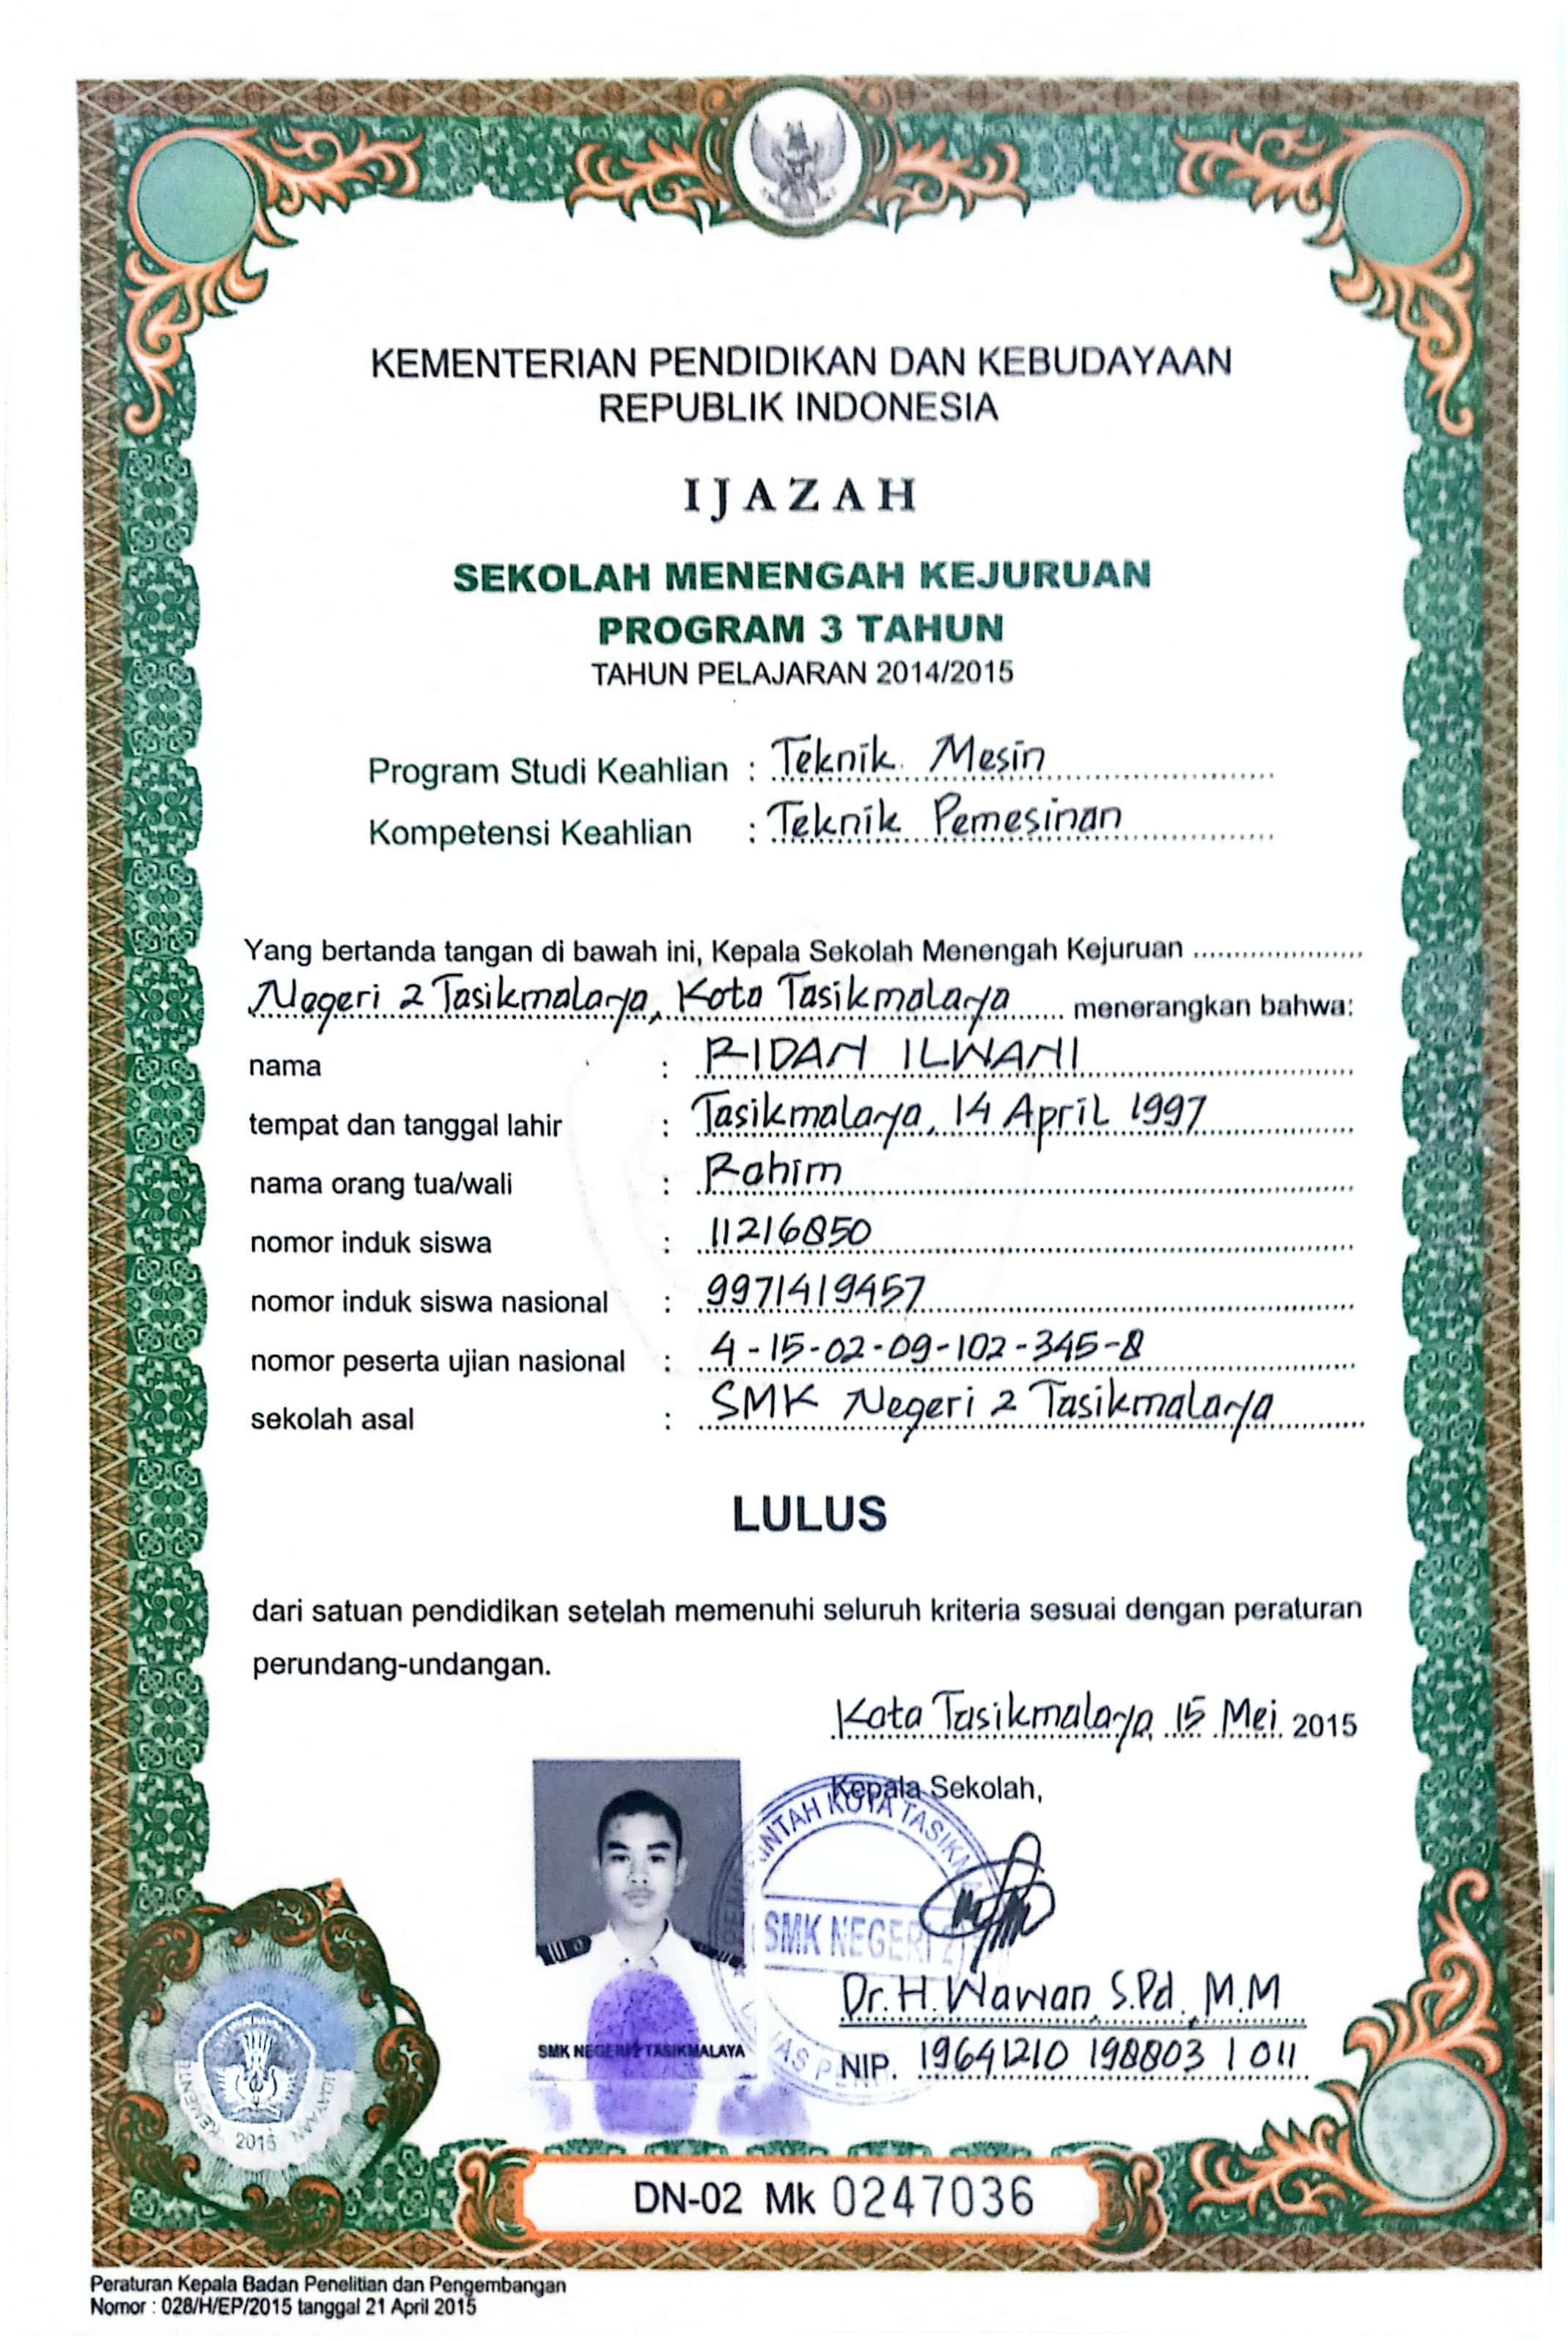 KEMENTERIAN PENDIDIKAN DAN KEBUDAYAAN
REPUBLIK INDONESIA
IJAZAH
SEKOLAH MENENGAH KEJURUAN
PROGRAM 3 TAHUN
TAHUN PELAJARAN 2014/2015
Program Studi Keahlian : Teknik Mesin
Kompetensi Keahlian : Teknik Pemesinan
Yang bertanda tangan di bawah ini, Kepala Sekolah Menengah Kejuruan
Negeri 2 Tasikmalaya, Kota Tasikmalaya menerangkan bahwa:
nama : RIDAN ILWANI
tempat dan tanggal lahir : Tasikmalaya, 14 April 1997
nama orang tua/wali : Rahim
nomor induk siswa : 11216850
nomor induk siswa nasional : 9971419457
nomor peserta ujian nasional : 4-15-02-09-102-345-8
sekolah asal : SMK Negeri 2 Tasikmalaya
LULUS
dari satuan pendidikan setelah memenuhi seluruh kriteria sesuai dengan peraturan
perundang-undangan.
Kota Tasikmalaya, 15 Mei 2015
Kepala Sekolah,
KOTA
SMK NEGERI 2
Dr. H. Wawan, S.Pd., M.M
NIP. 19641210 198803 1 011
SMK NEGERI 2 TASIKMALAYA
2015
DN-02 Mk 0247036
Peraturan Kepala Badan Penelitian dan Pengembangan
Nomor : 028/H/EP/2015 tanggal 21 April 2015